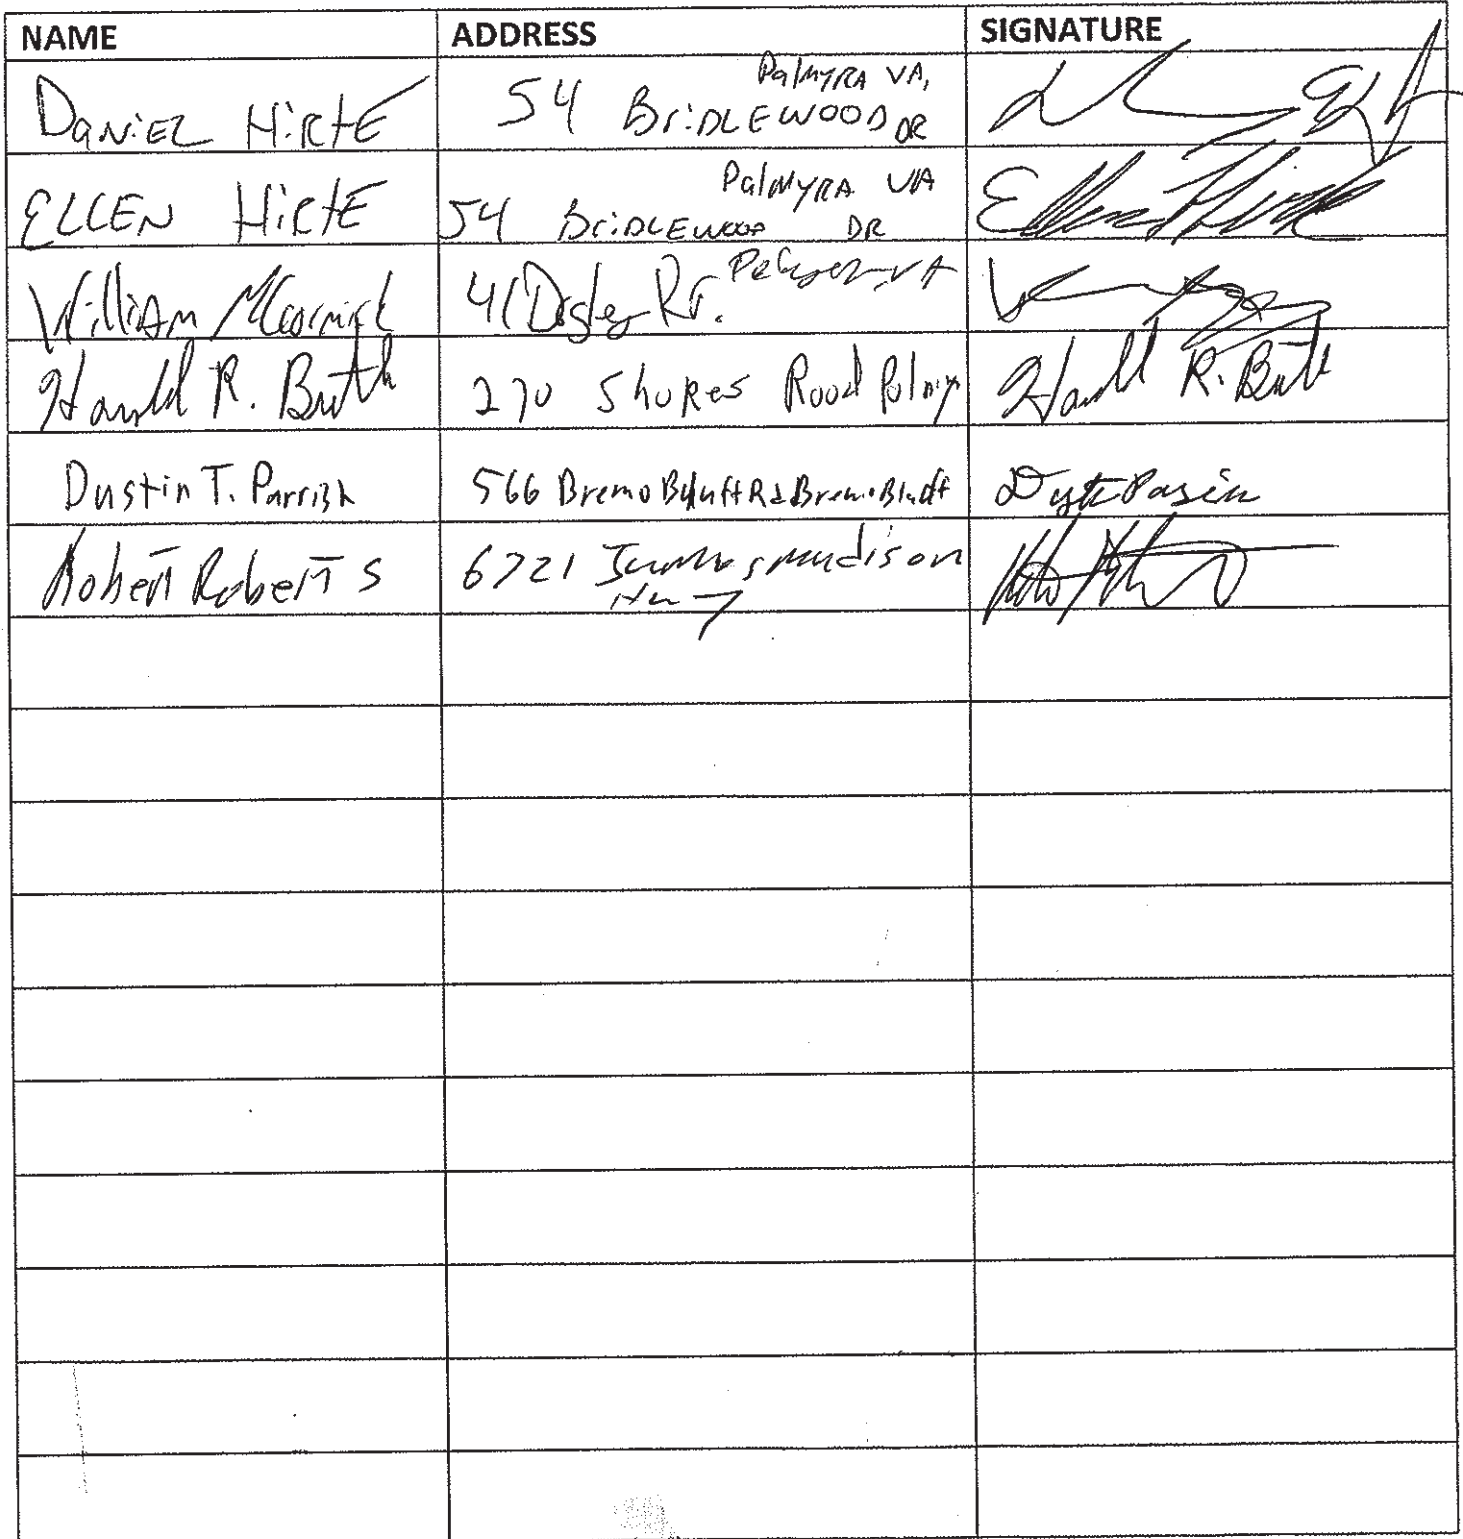 NAME ADDRESS SIGNATURE
DANiEL HiRtE 54 BriDLEWOOD DR PalmyRA VA,
ELLEN HiRtE 54 BriDLEWOOD DR PalMyRA VA
William McCormick 41 Rd. VA
Harold R. Buth 270 Shores Road Palmyra Harold R. Buth
Dustin T. Parrish 566 Bremo Bluff Rd Bremo Bluff
Robert Roberts 6721 James madison Hwy